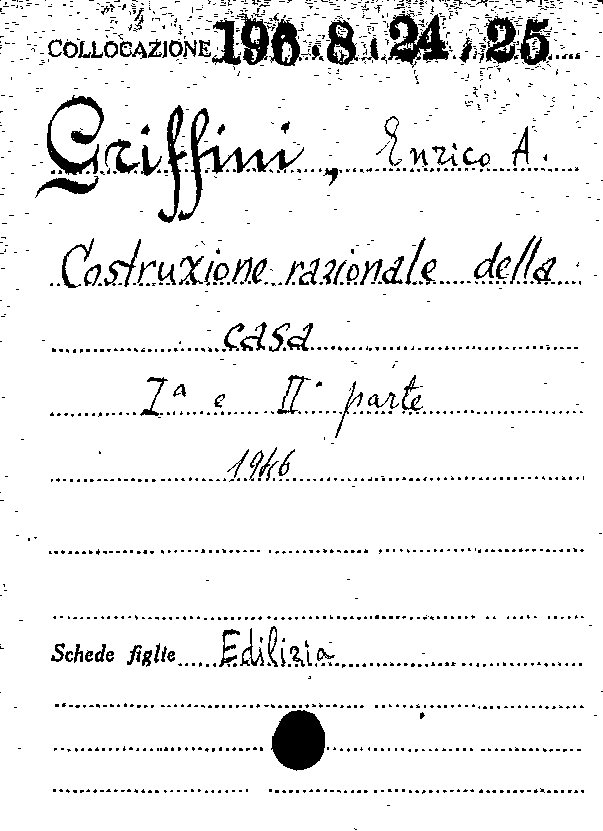 COLLOCAZIONE 196.8.24/25
Griffini, Enrico A.
Costruzione razionale della
casa
Iª e IIª parte
1946
Schede figlie Edilizia